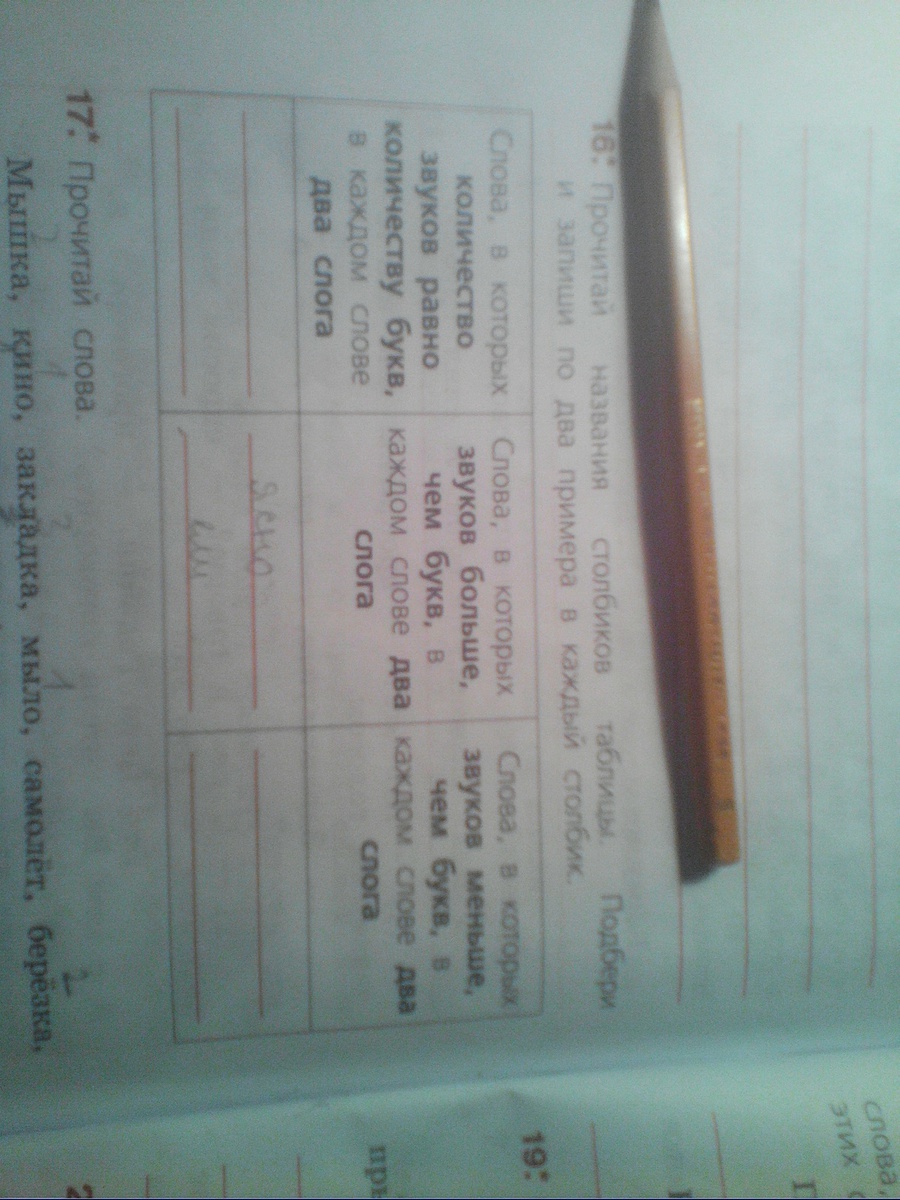 слова,
этих
16* Прочитай названия столбиков таблицы. Подбери
и запиши по два примера в каждый столбик.
Слова, в которых
количество
звуков равно
количеству букв,
в каждом слове
два слога
Слова, в которых
звуков больше,
чем букв, в
каждом слове два
слога
Слова, в которых
звуков меньше,
чем букв, в
каждом слове два
слога
17* Прочитай слова.
Мышка, кино, закладка, мыло, самолёт, берёзка,
19*
2